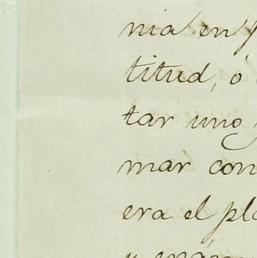 nia en
titud, ó
tar uno
mar con
era el pla